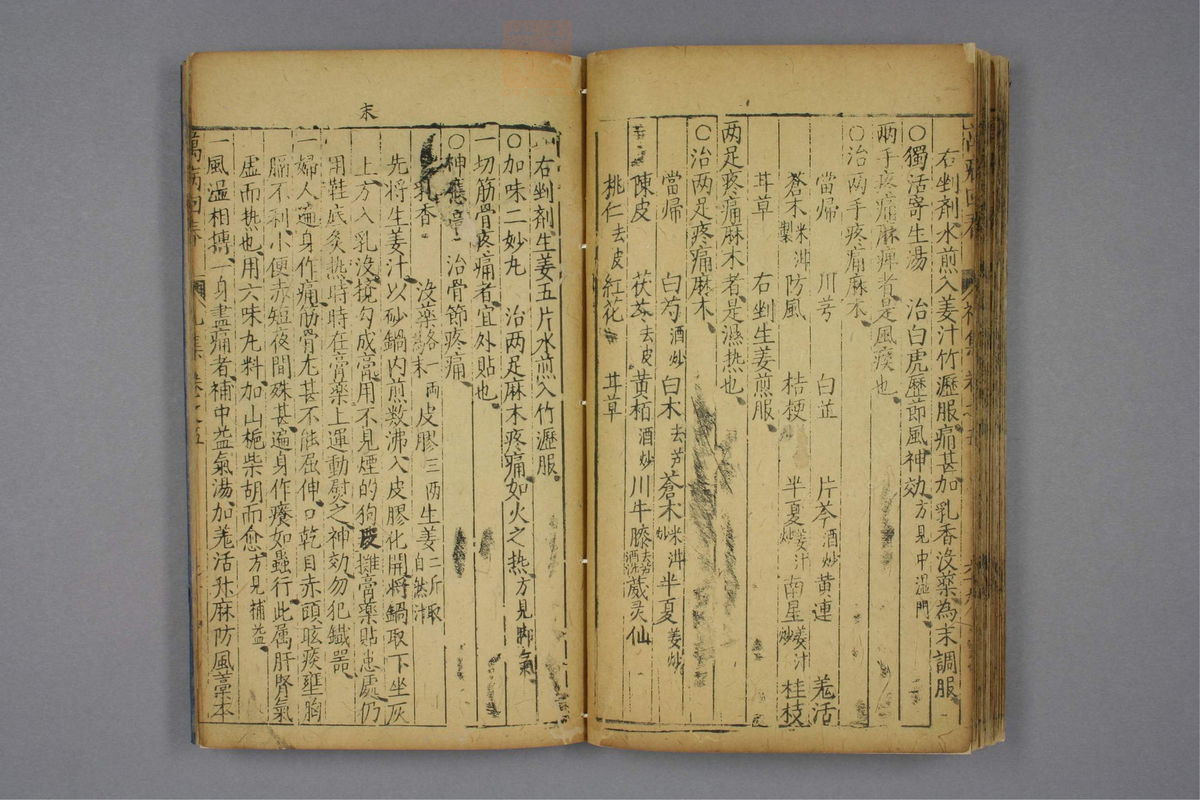 右剉剂水煎入姜汁竹瀝服痛甚加乳香没藥為末調服
○獨活寄生湯 治白虎歷節風神効方見中濕門
兩手疼痛麻痺者是風痰也
○治两手疼痛麻木
當帰 川芎 白芷 片芩酒炒 黄連 羗活
蒼木米泔製 防風 桔梗 半夏姜汁炒 南星姜汁炒 桂枝
甘草 右剉生姜煎服
两足疼痛麻木者是濕热也
○治两足疼痛麻木
當帰 白芍酒炒 白木去芦 蒼木米泔炒 半夏姜炒
陳皮 茯苓去皮 黄栢酒炒 川牛膝去芦酒洗 葳灵仙
桃仁去皮 紅花 甘草
萬病回春 卷之五
末
右剉剂生姜五片水煎入竹瀝服
○加味二妙丸 治两足麻木疼痛如火之热方見脚氣
一切筋骨疼痛者宜外貼也
○神應膏 治骨節疼痛
乳香 没藥各一両末 皮膠三两 生姜二斤取自然汁
先将生姜汁以砂鍋内煎数沸入皮膠化開将鍋取下坐灰
上方入乳没搅匀成膏用不見煙的狗皮攤膏藥貼患處仍
用鞋底炙热時時在膏藥上運動熨之神効勿犯鐡噐
一婦人遍身作痛筋骨尤甚不能屈伸口乾目赤頭眩痰壅胸
膈不利小便赤短夜間殊甚遍身作癢如蟲行此属肝腎氣
虚而热也用六味丸料加山梔柴胡而愈方見補益
一風濕相搏一身盡痛者補中益氣湯加羗活升麻防風藁本